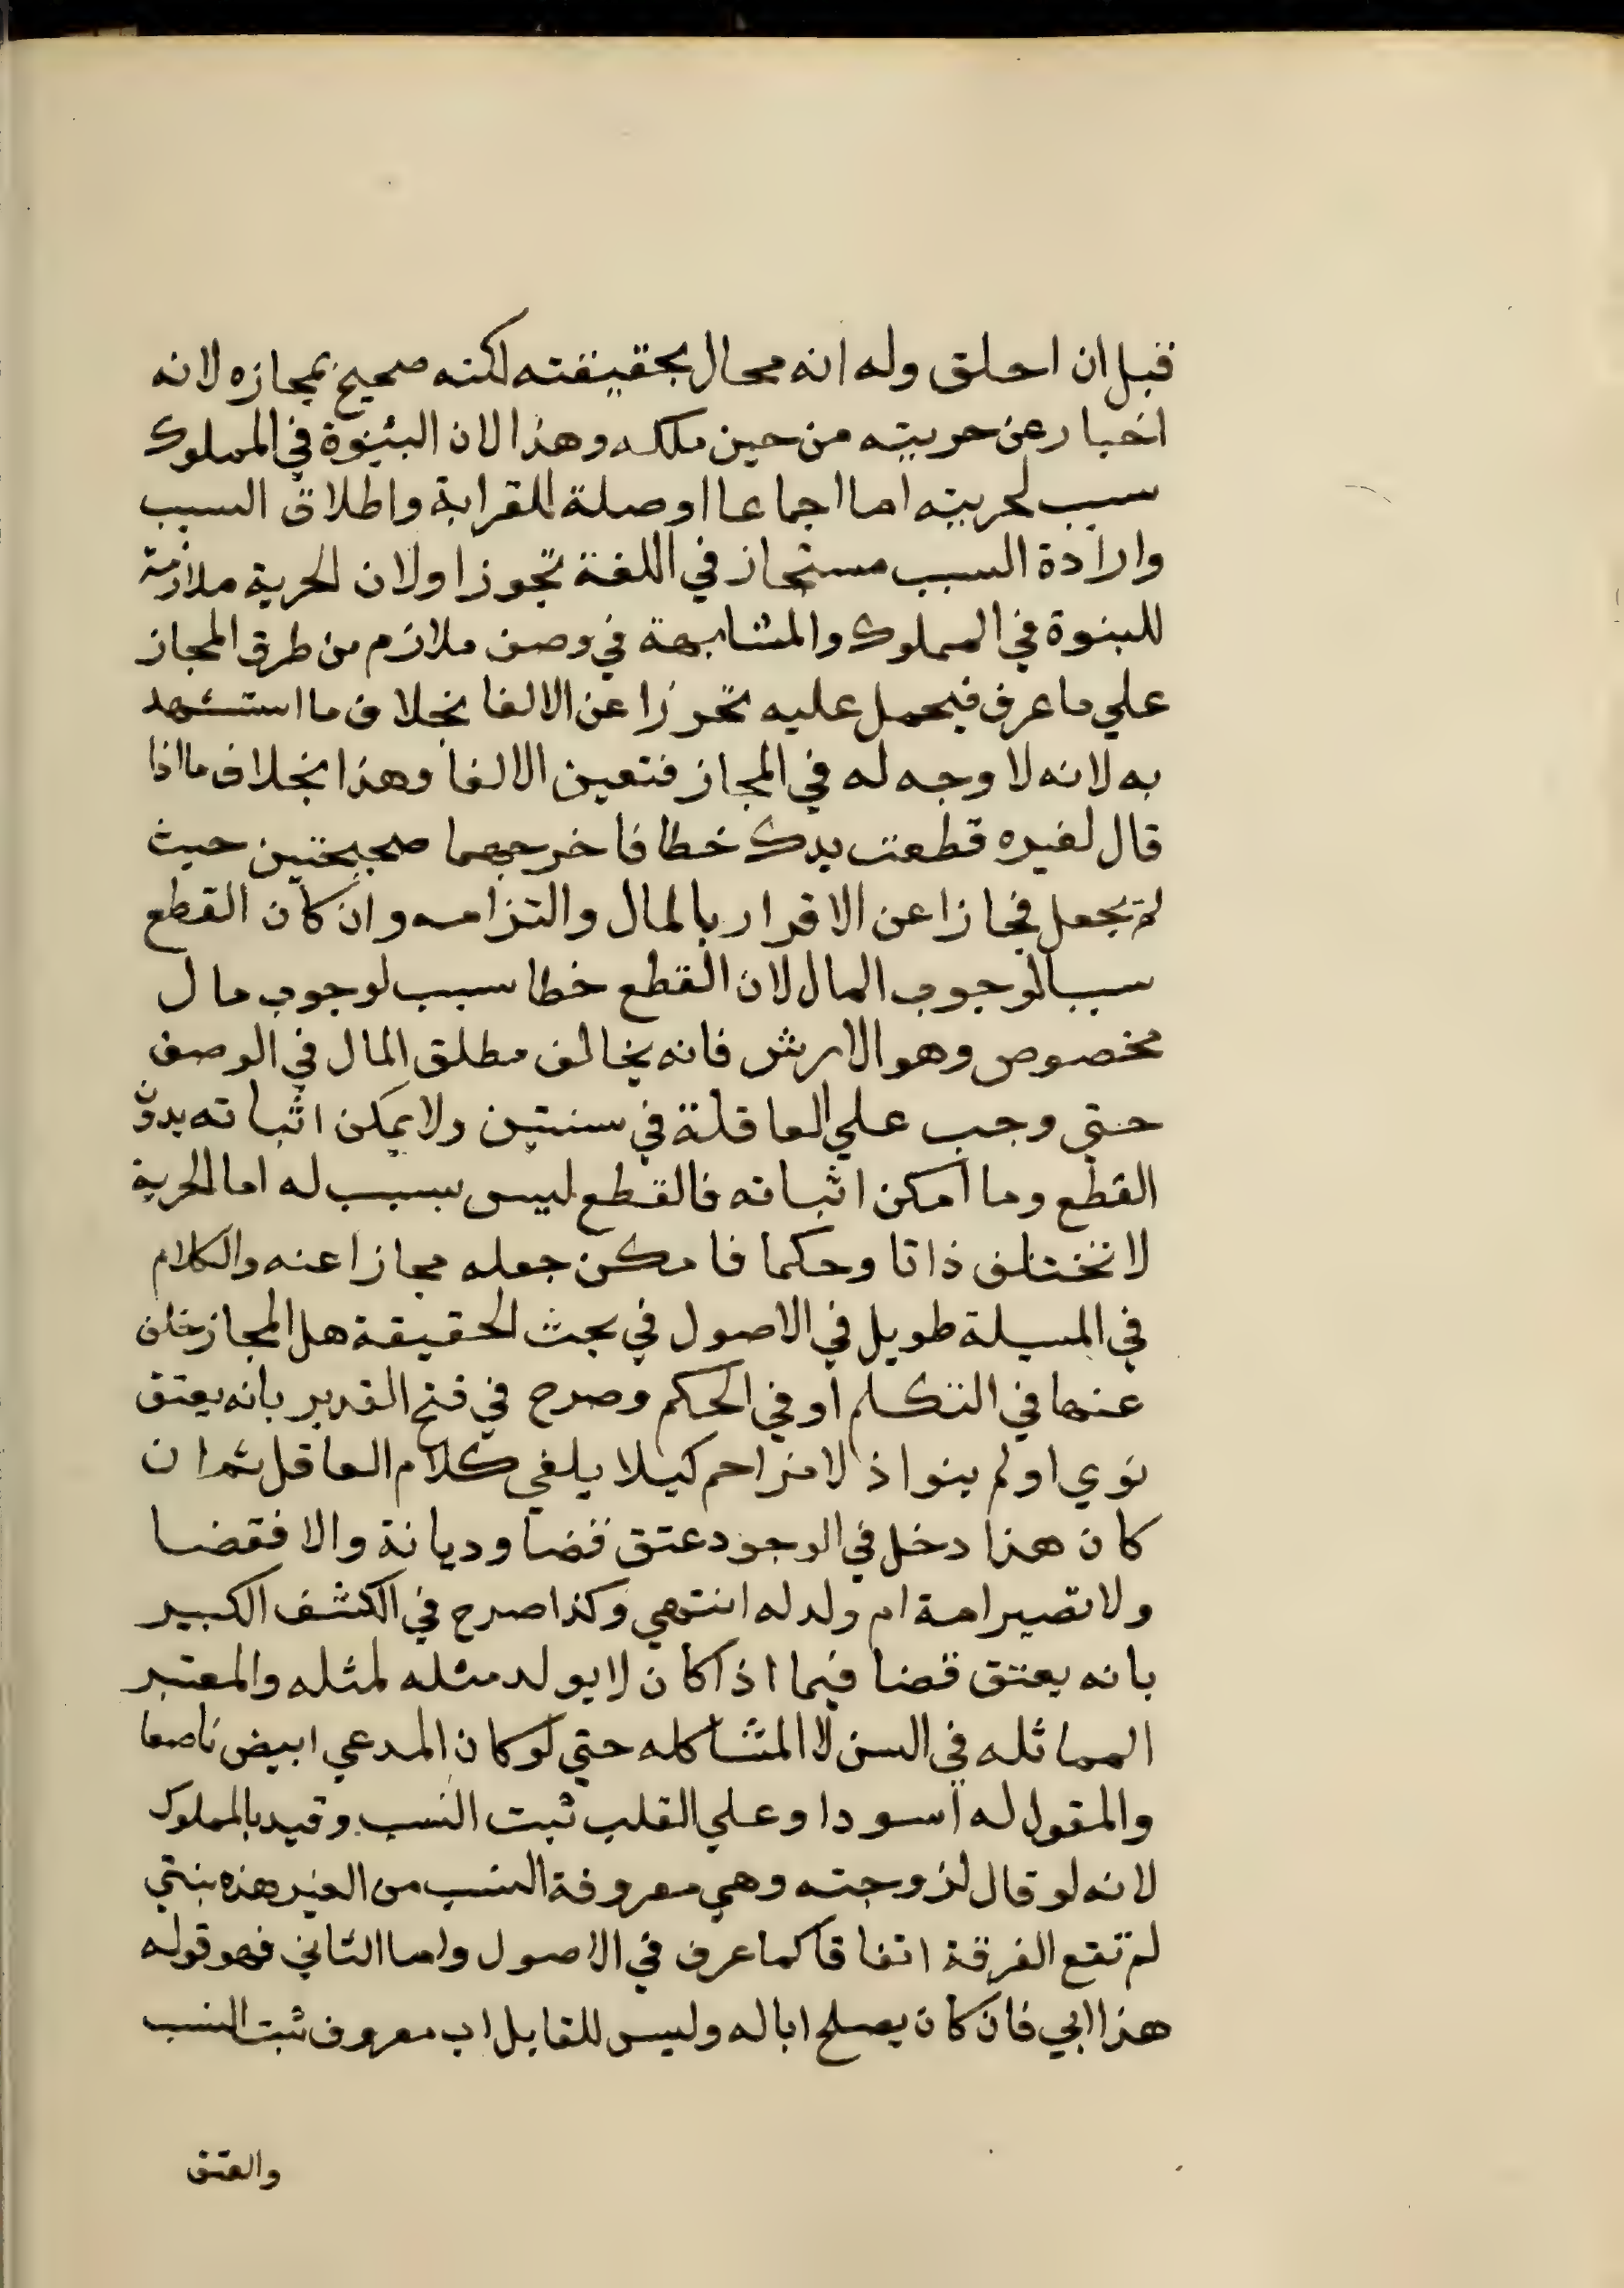 قبل ان احلق وله انه محال بحقيقته لكنه صحيح بمجازه لانه
اخبار عن حريته من حين ملكه وهذا لان البنوة في المملوك
سبب لحريته اما اجماعا اوصلة للقرابة واطلاق السبب
وارادة السبب مستجاز في اللغة تجوزا ولان الحرية ملازمة
للبنوة في المملوك والمشابهة في وصف ملازم من طرق المجاز
علي ما عرف فيحمل عليه تحرزا عن الالغا بخلاف ما استشهد
به لانه لا وجه له في المجاز فتعين الالغا وهذا بخلاف ما اذا
قال لغيره قطعت يدك خطا فاخرجهما صحيحتين حيث
لم يجعل مجازا عن الاقرار بالمال والتزامه وان كان القطع
سببا لوجوب المال لان القطع خطا سبب لوجوب مال
مخصوص وهو الارش فانه يخالف مطلق المال في الوصف
حتي وجب علي العاقلة في سنتين ولا يمكن اثباته بدون
القطع وما امكن اثباته فالقطع ليس بسبب له اما الحرية
لا تختلف ذاتا وحكما فامكن جعله مجازا عنه والكلام
في المسيلة طويل في الاصول في بحث الحقيقة هل المجاز خلف
عنها في التكلم او في الحكم وصرح في فتح القدير بانه يعتق
نوي او لم ينو اذ لا مزاحم كيلا يلغي كلام العاقل ثم ان
كان هذا دخل في الوجود عتق قضا وديانة والا فقضا
ولا تصير امة ام ولد له انتهي وكذا صرح في الكشف الكبير
بانه يعتق قضا فيما اذا كان لا يولد مثله لمثله والمعتبر
المماثله في السن لا المشاكله حتي لو كان المدعي ابيض ناصعا
والمقول له اسود او علي القلب ثبت النسب وقيد بالمملوك
لانه لو قال لزوجته وهي معروفة النسب من الغير هذه بنتي
لم تقع الفرقة اتفاقا كما عرف في الاصول واما الثاني فهو قوله
هذا ابي فان كان يصلح ابا له وليس للقايل اب معروف ثبت النسب
والعتق